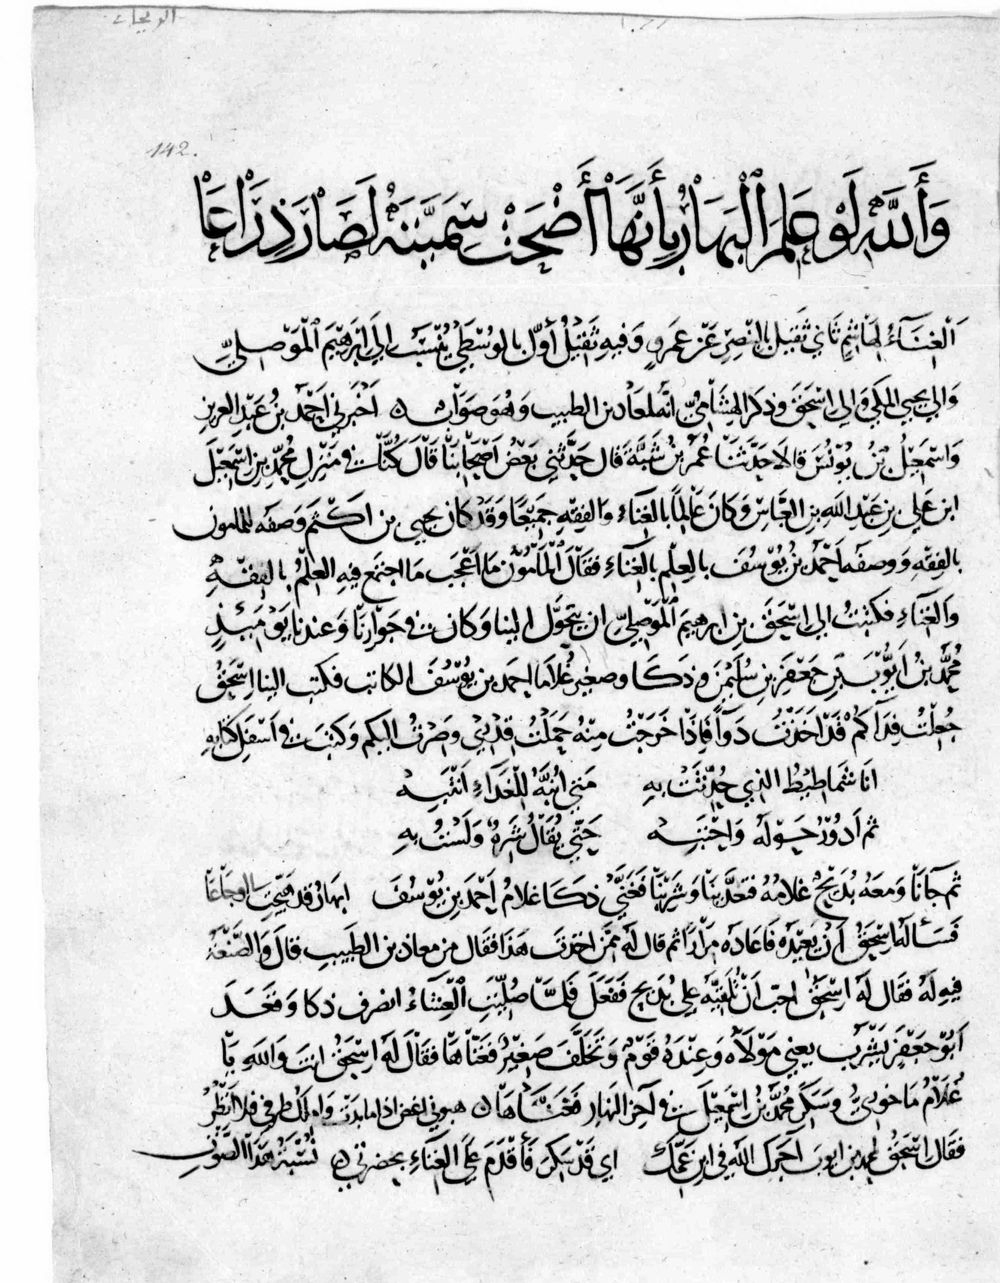 142.
وَاللَّهِ لَوْ عَلِمَ الْبَهَارُ بِأَنَّهَا أَضْحَتْ سَمِيَّتَهُ لَصَارَ ذِرَاعَا
الغناء لهاشم ثاني ثقيل بالبنصر عن عمرو وفيه ثقيل أول بالوسطي ينسب الي ابرهيم الموصلي
والي يحيي المكي والي اسحق وذكر الهشامي انه لمعاذ بن الطبيب وهو صواب ۞ اخبرني احمد بن عبد العزيز
واسمعيل بن يونس قالا حدثنا عمر بن شبة قال حدثني بعض اصحابنا قال كنا في منزل محمد بن اسمعيل
ابن علي بن عبد الله بن العباس وكان عالما بالغناء والفقه جميعا وقد كان يحيي بن اكثم وصفه للمامون
بالفقه ووصفه احمد بن يوسف بالعلم بالغناء فقال المامون ما اعجب ما اجتمع فيه العلم بالفقه
والغناء فكتبت الي اسحق بن ابرهيم الموصلي ان يتحول الينا وكان في جوارنا وعندنا يومئذ
محمد بن ايوب بن جعفر بن سليمن وذكا وصغير غلاما احمد بن يوسف الكاتب فكتب الينا اسحق
جعلت فداكم قد اخذت دوآ فاذا خرجت منه حملت قدري وصرت اليكم وكتب في اسفل كتابه
انا شماطيط الذي حدثت به متي انبه للغداء انتبه
ثم ادور حوله واحتبه حتي يقال شره ولست به
ثم جآنا ومعه بديح غلامه فتغدينا وشربنا فغني ذكا غلام احمد بن يوسف ابهار قد هيجت لي اوجاعا
فساله اسحق ان يعيده فاعاده مرارا ثم قال له ممن اخذت هذا فقال من معاذ بن الطبيب قال والصنعة
فيه له فقال له اسحق احب ان تلقيه علي بديح ففعل فلما صليت العشاء انصرف ذكا وقعد
ابو جعفر يشرب يعني مولاه وعنده قوم وتخلف صغير فغناها فقال له اسحق انت والله يا
غلام ماخوري وسكر محمد بن اسمعيل في آخر النهار فغناها ۞ هبوني اغض اذا ما بدت واملك طرفي فلا انظر
فقال اسحق لمحمد بن ايوب اجرك الله في ابن عمك اي قد سكر فأقدم علي الغناء بحضرتي ۞ نسبة هذا الصوت